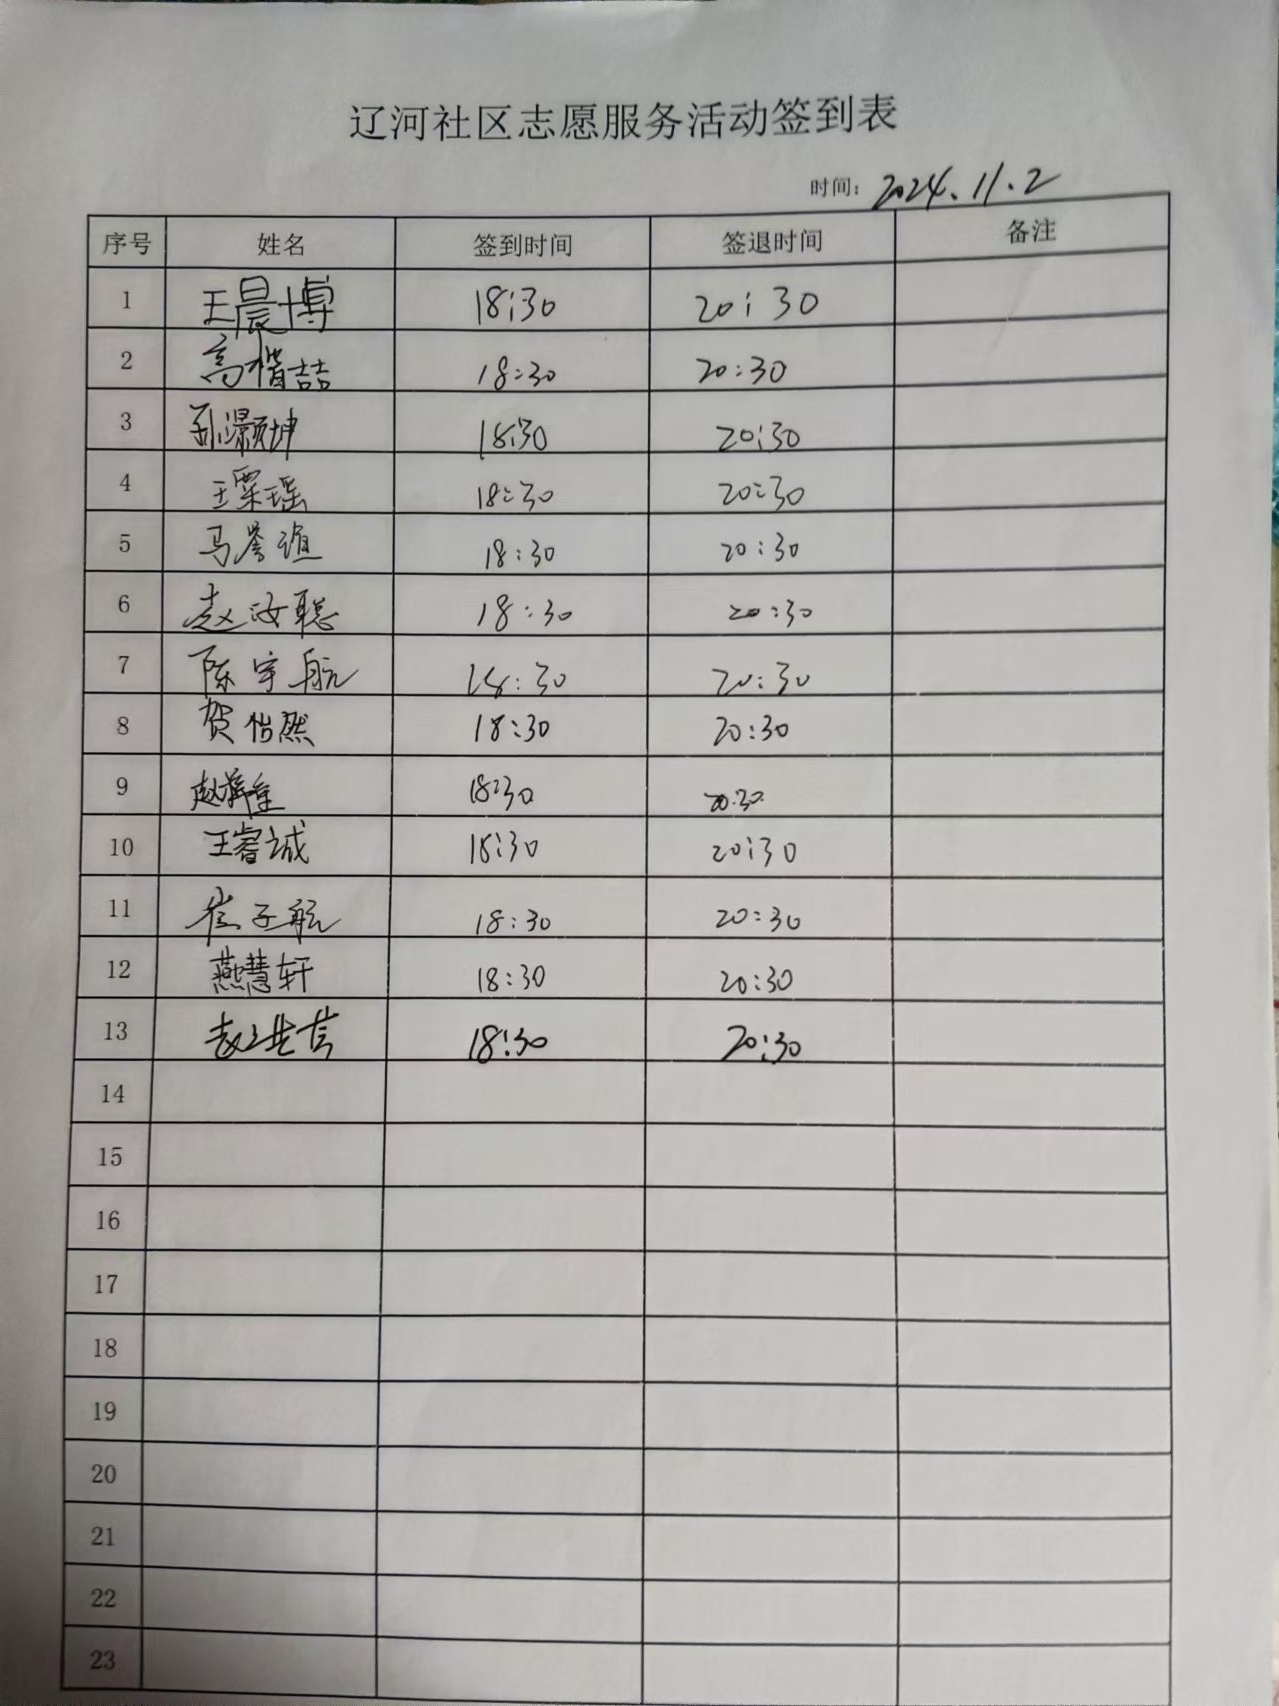 辽河社区志愿服务活动签到表
时间: 2024.11.2
序号 姓名 签到时间 签退时间 备注
1 王晨博 18:30 20:30
2 高楷喆 18:30 20:30
3 孙灏坤 18:30 20:30
4 王霂瑶 18:30 20:30
5 马誉谊 18:30 20:30
6 赵汝聪 18:30 20:30
7 陈宇航 18:30 20:30
8 贺怡然 18:30 20:30
9 赵 18:30 20:30
10 王睿诚 18:30 20:30
11 崔子航 18:30 20:30
12 燕慧轩 18:30 20:30
13 赵 18:30 20:30
14
15
16
17
18
19
20
21
22
23